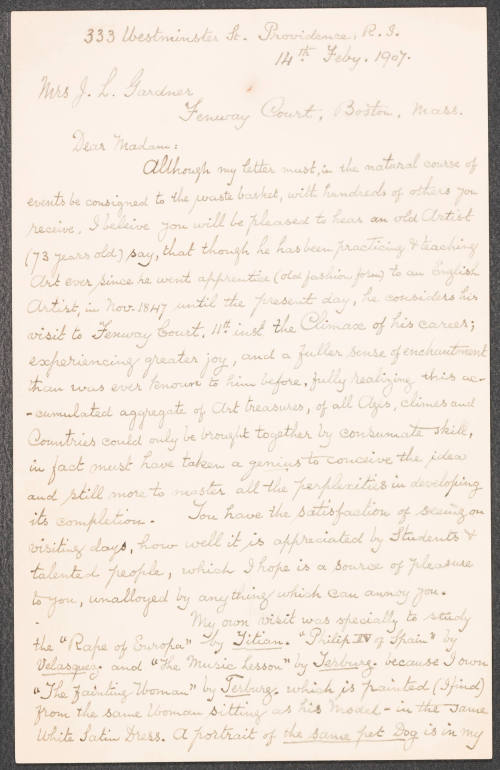 333 Westminster St. Providence, R.I.
14th Feby. 1907.
Mrs J. L. Gardner
Fenway Court, Boston, Mass.
Dear Madam:
Although my letter must, in the natural course of
events be consigned to the waste basket, with hundreds of others you
receive, I beleive you will be pleased to hear an old Artist
(73 years old) say, that though he has been practicing & teaching
Art ever since he went apprentice (old fashion form) to an English
Artist, in Nov. 1847 until the present day, he considers his
visit to Fenway Court, 11th inst the Climax of his career;
experiencing greater joy, and a fuller sense of enchantment
than was ever known to him before, fully realizing this ac-
-cumulated aggregate of Art treasures, of all Ages, climes and
Countries could only be brought together by consumate skill,
in fact must have taken a genius to conceive the idea
and still more to master all the perplexities in developing
its completion. - You have the satisfaction of seeing on
visiting days, how well it is appreciated by Students &
talented people, which I hope is a source of pleasure
to you, unalloyed by anything which can annoy you.
My own visit was specially to study
the "Rape of Europa" by Titian. "Philip IV of Spain" by
Velasquez. and "The Music Lesson" by Terburg. because I own
"The Fainting Woman" by Terburg. which is painted (I find)
from the same Woman sitting as his Model - in the same
White Satin Dress. A portrait of the same pet Dog is in my